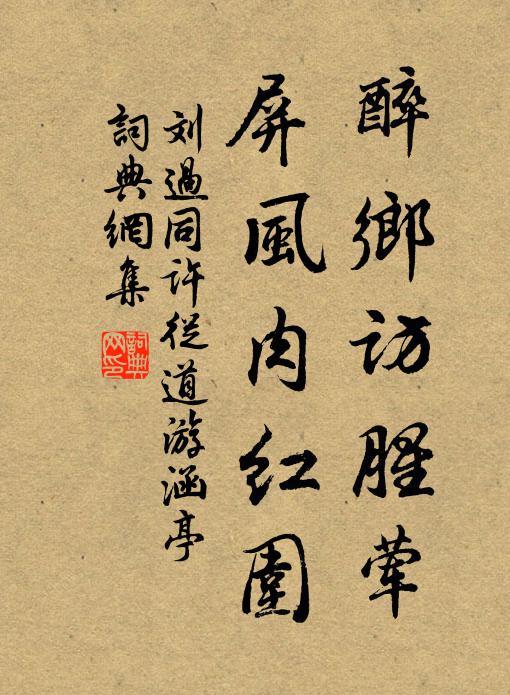 醉鄉訪腥葷
屏風肉紅圍
刘過同许從道游涵亭
詞典網集
詞典
网印